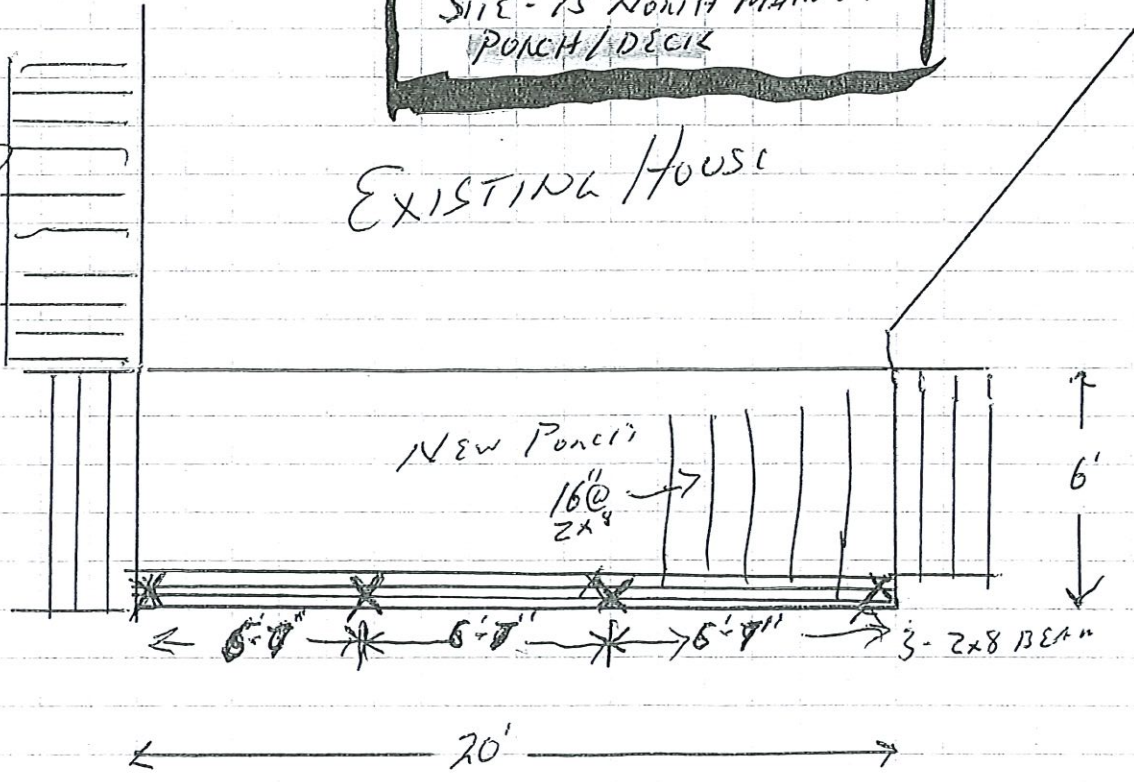 SITE - 15 NORTH
PORCH/DECK
EXISTING HOUSE
NEW PORCH
16"@
2x8
6'
3- 2x8 BEAM
20'